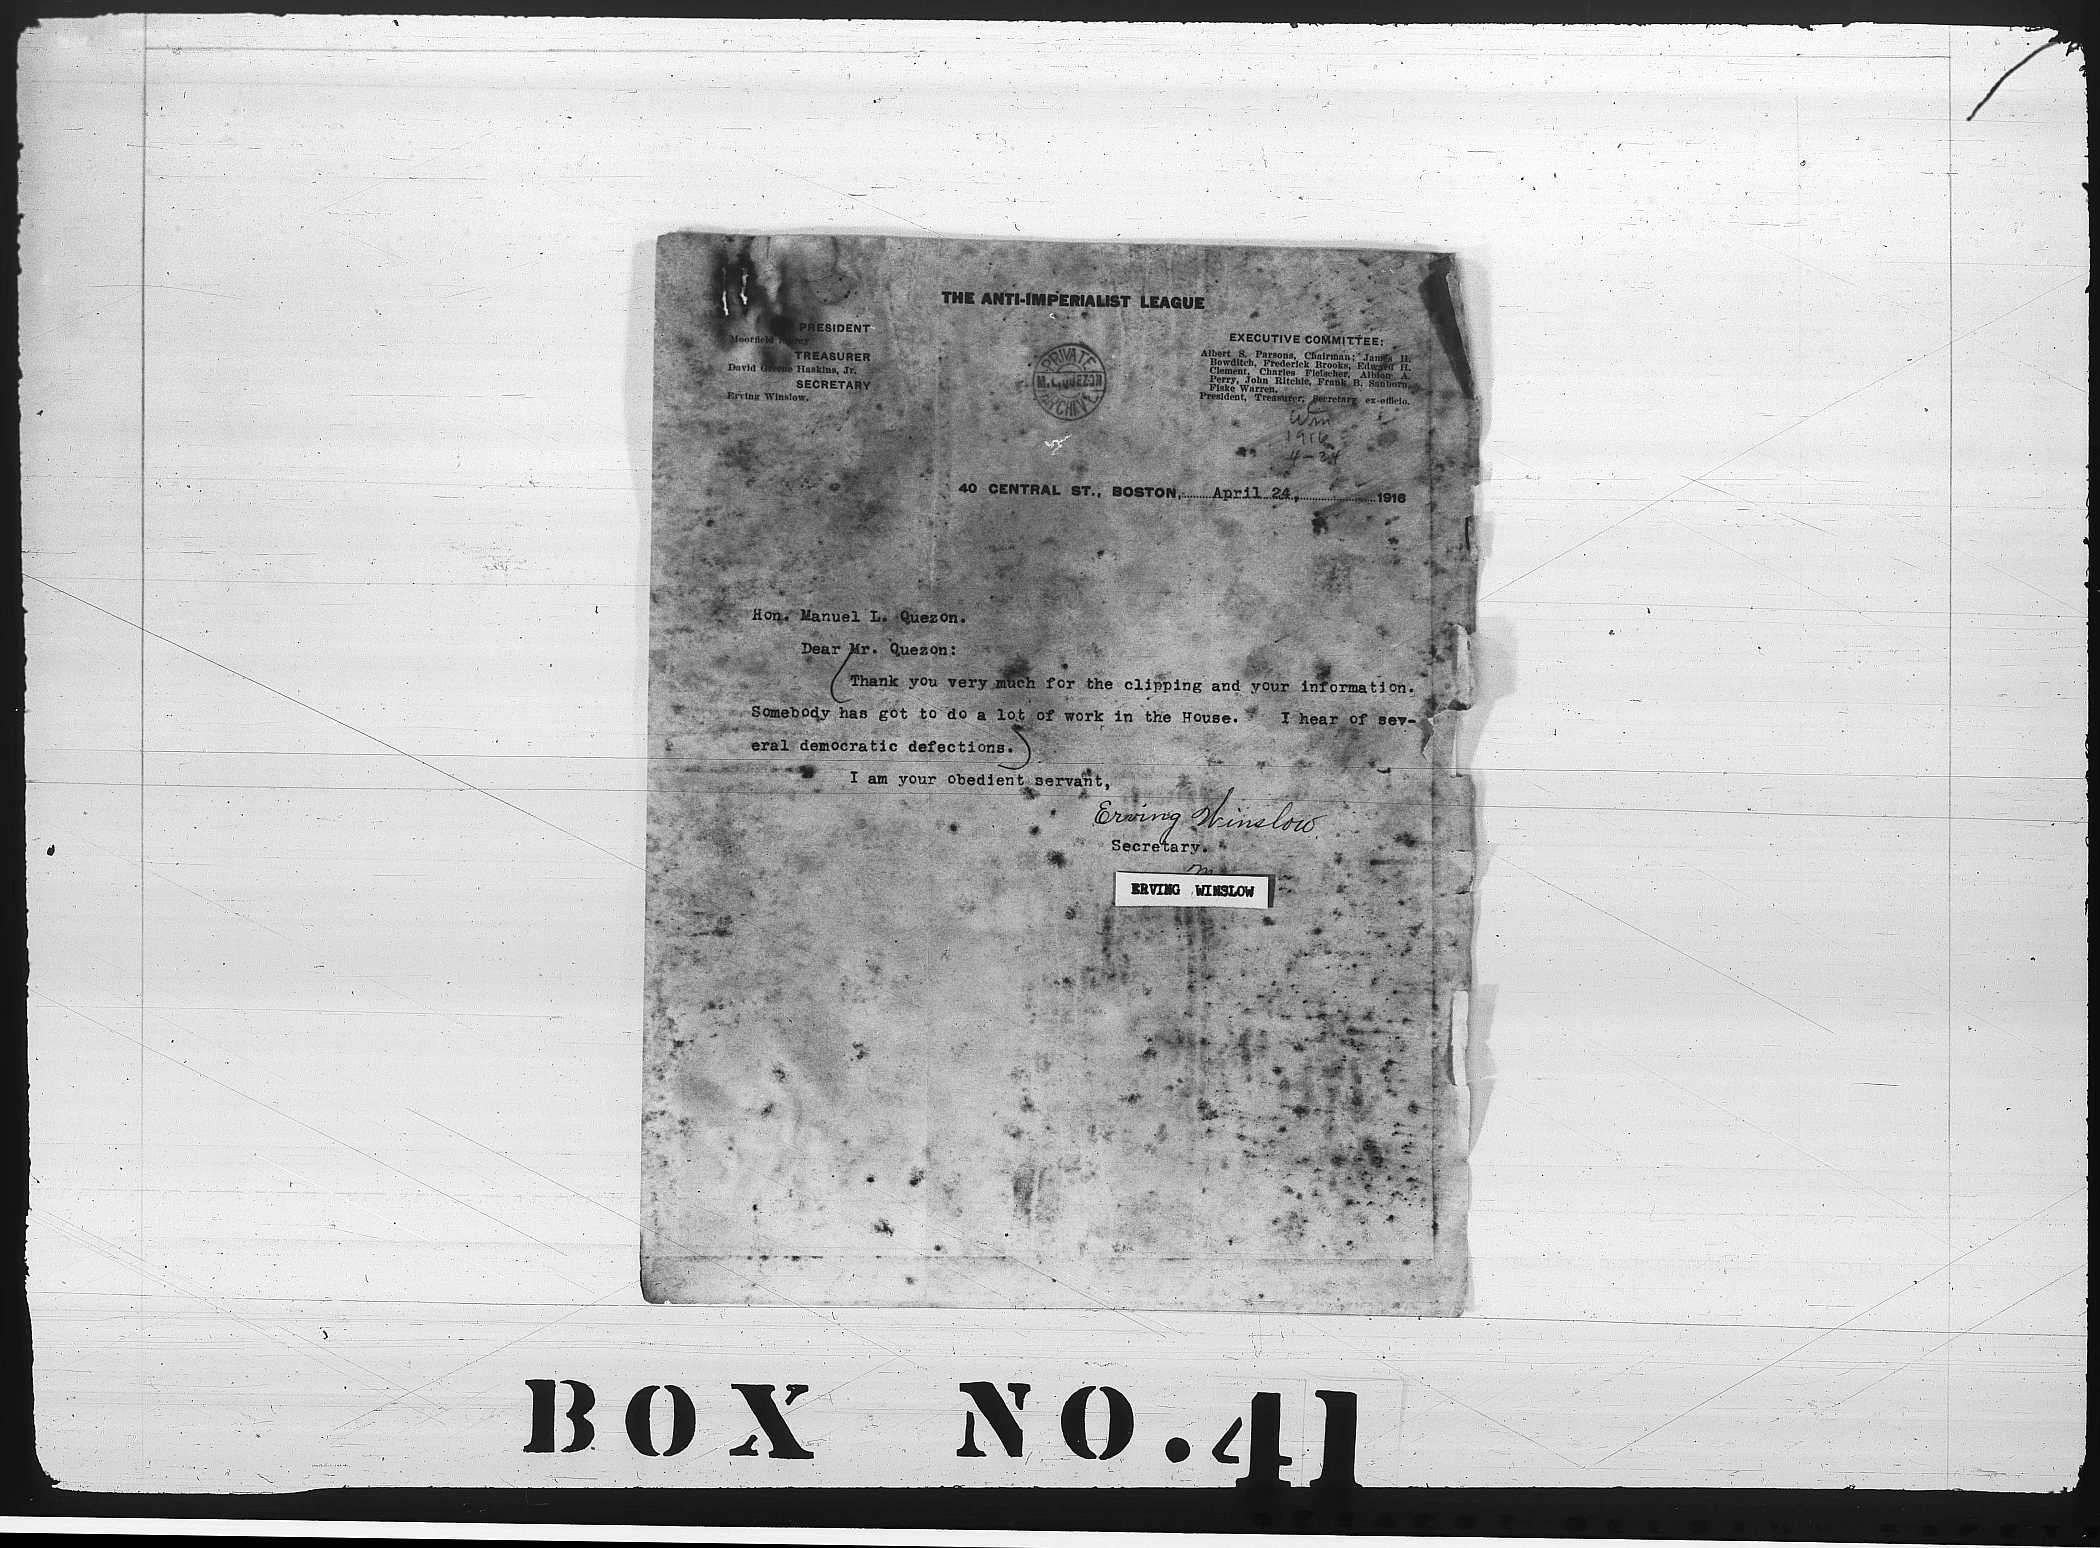 THE ANTI-IMPERIALIST LEAGUE
PRESIDENT
Moorfield
TREASURER
David Greene Haskins, Jr.
SECRETARY
Erving Winslow.
PRIVATE
M. L. QUEZON
ARCHIVE
EXECUTIVE COMMITTEE:
Albert S. Parsons, Chairman; James H.
Bowditch, Frederick Brooks, Edward H.
Clement, Charles Fleischer, Albion A.
Perry, John Ritchie, Frank B. Sanborn,
Fiske Warren.
President, Treasurer, Secretary ex-officio.
1916
4-24
40 CENTRAL ST., BOSTON, April 24, 1916
Hon. Manuel L. Quezon.
Dear Mr. Quezon:
Thank you very much for the clipping and your information.
Somebody has got to do a lot of work in the House. I hear of sev-
eral democratic defections.
I am your obedient servant,
Erving Winslow
Secretary.
ERVING WINSLOW
BOX NO. 41